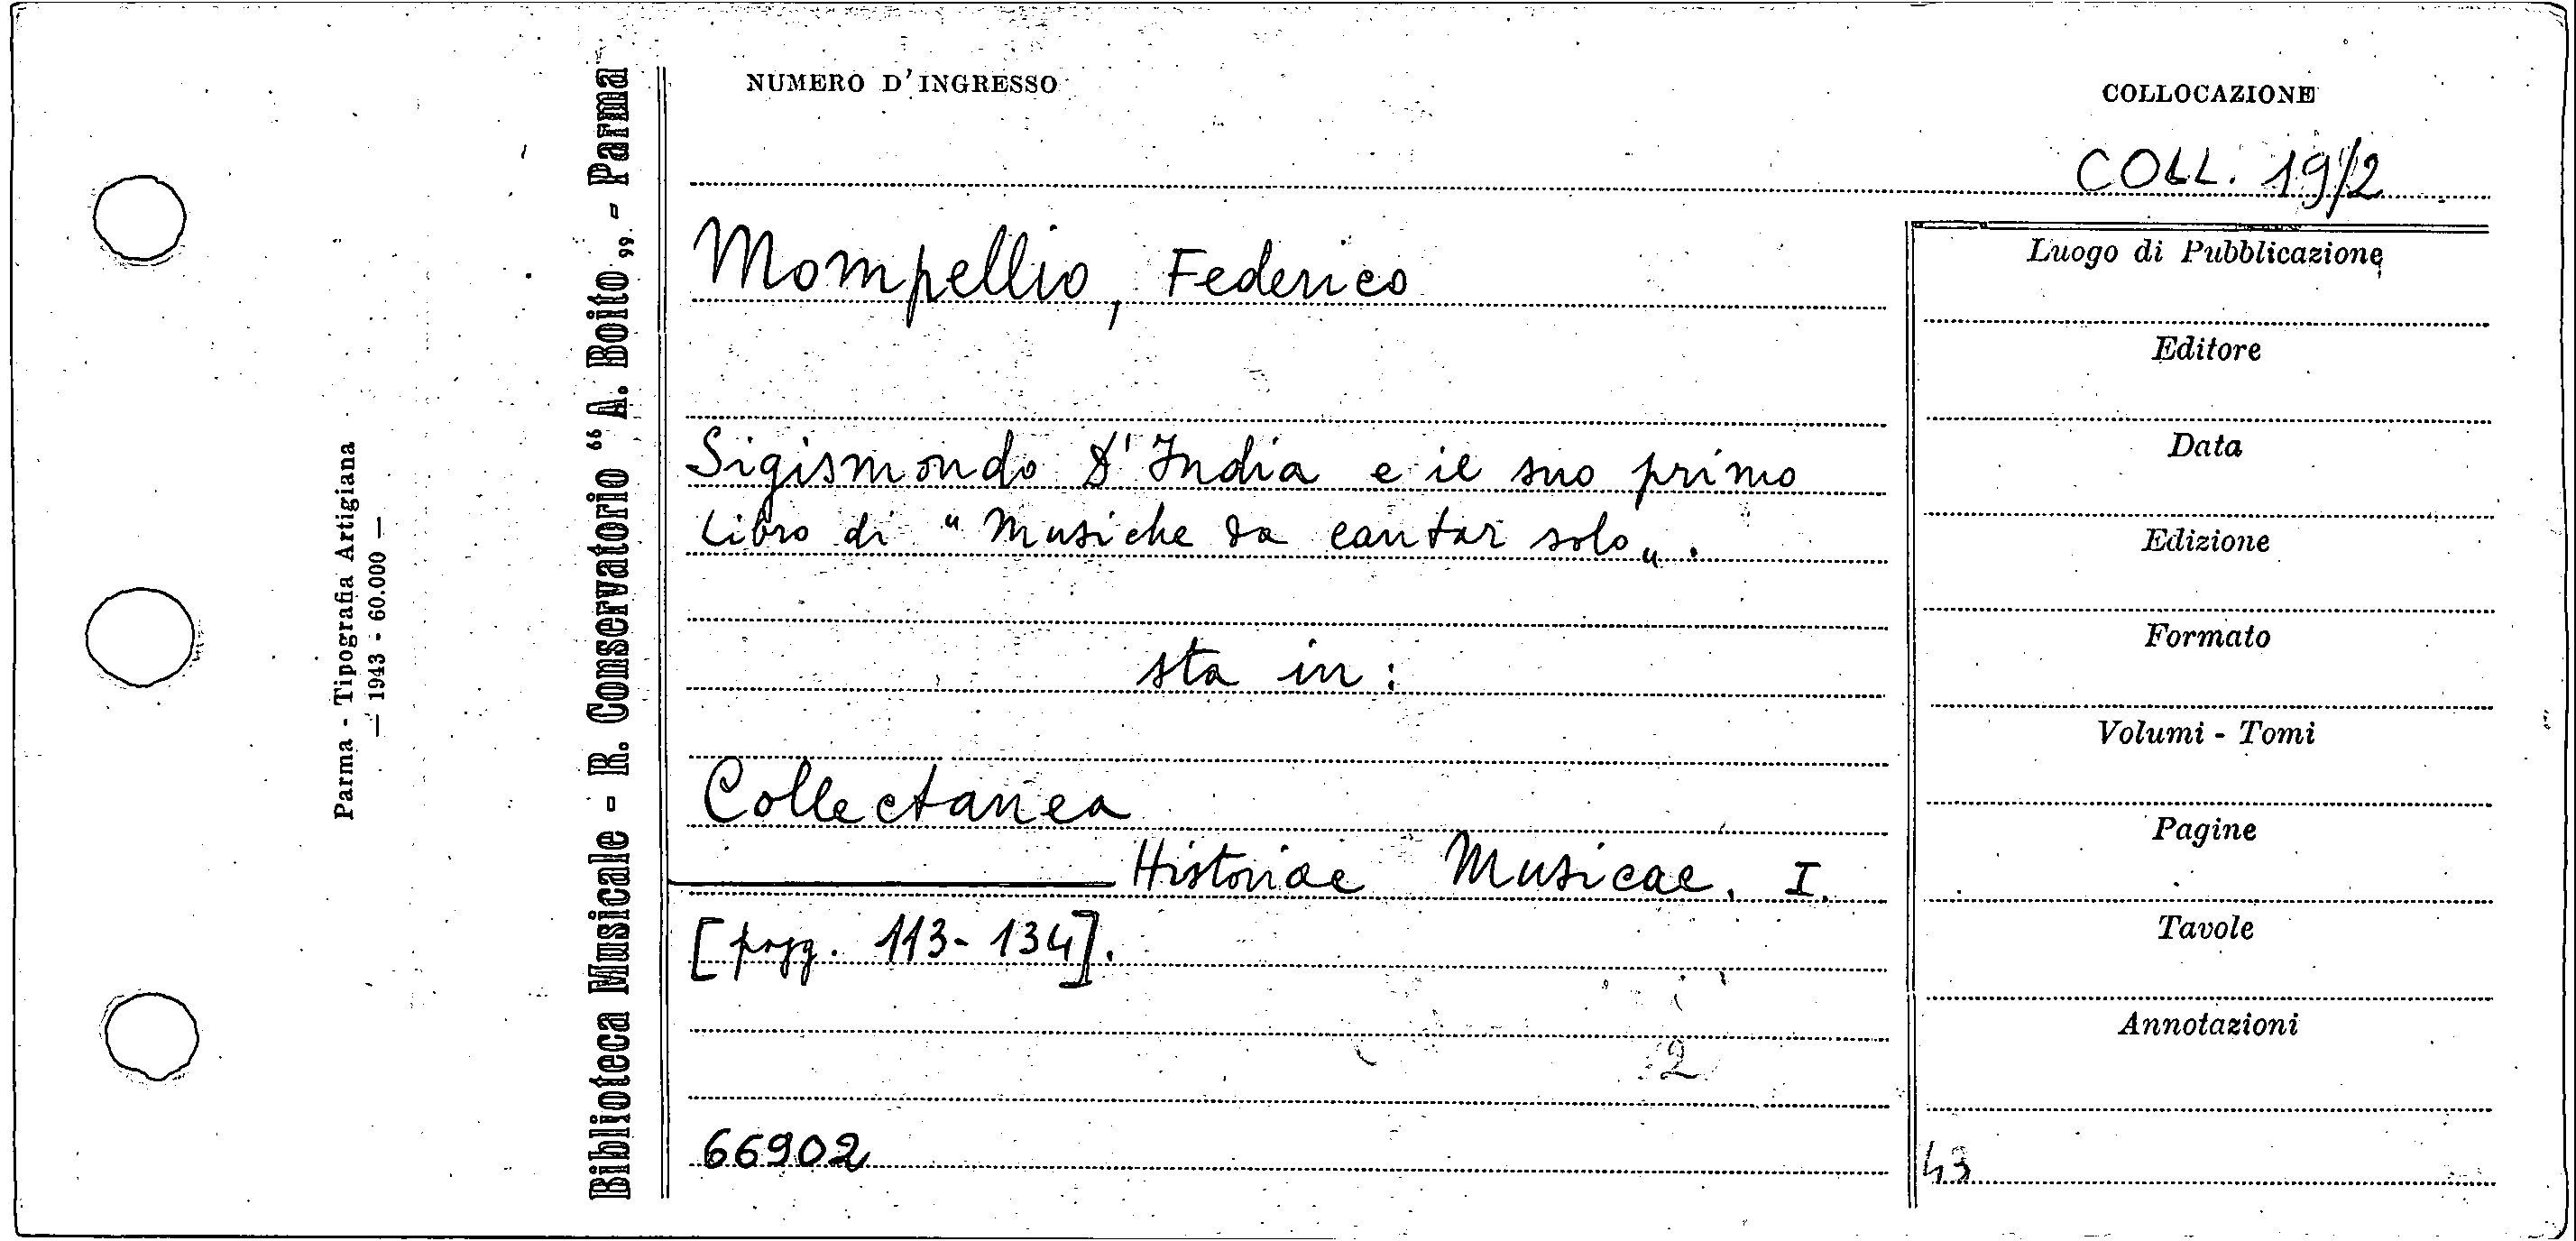 Parma - Tipografia Artigiana
— 1943 - 60.000 —
Biblioteca Musicale - R. Conservatorio “A. Boito„ - Parma
NUMERO D'INGRESSO
COLLOCAZIONE
COLL. 19/2
Mompellio, Federico
Sigismondo D'India e il suo primo
libro di "Musiche da cantar solo„.
sta in:
Collectanea
Historiae Musicae. I.
[pagg. 113-134].
2
66902
Luogo di Pubblicazione
Editore
Data
Edizione
Formato
Volumi - Tomi
Pagine
Tavole
Annotazioni
43